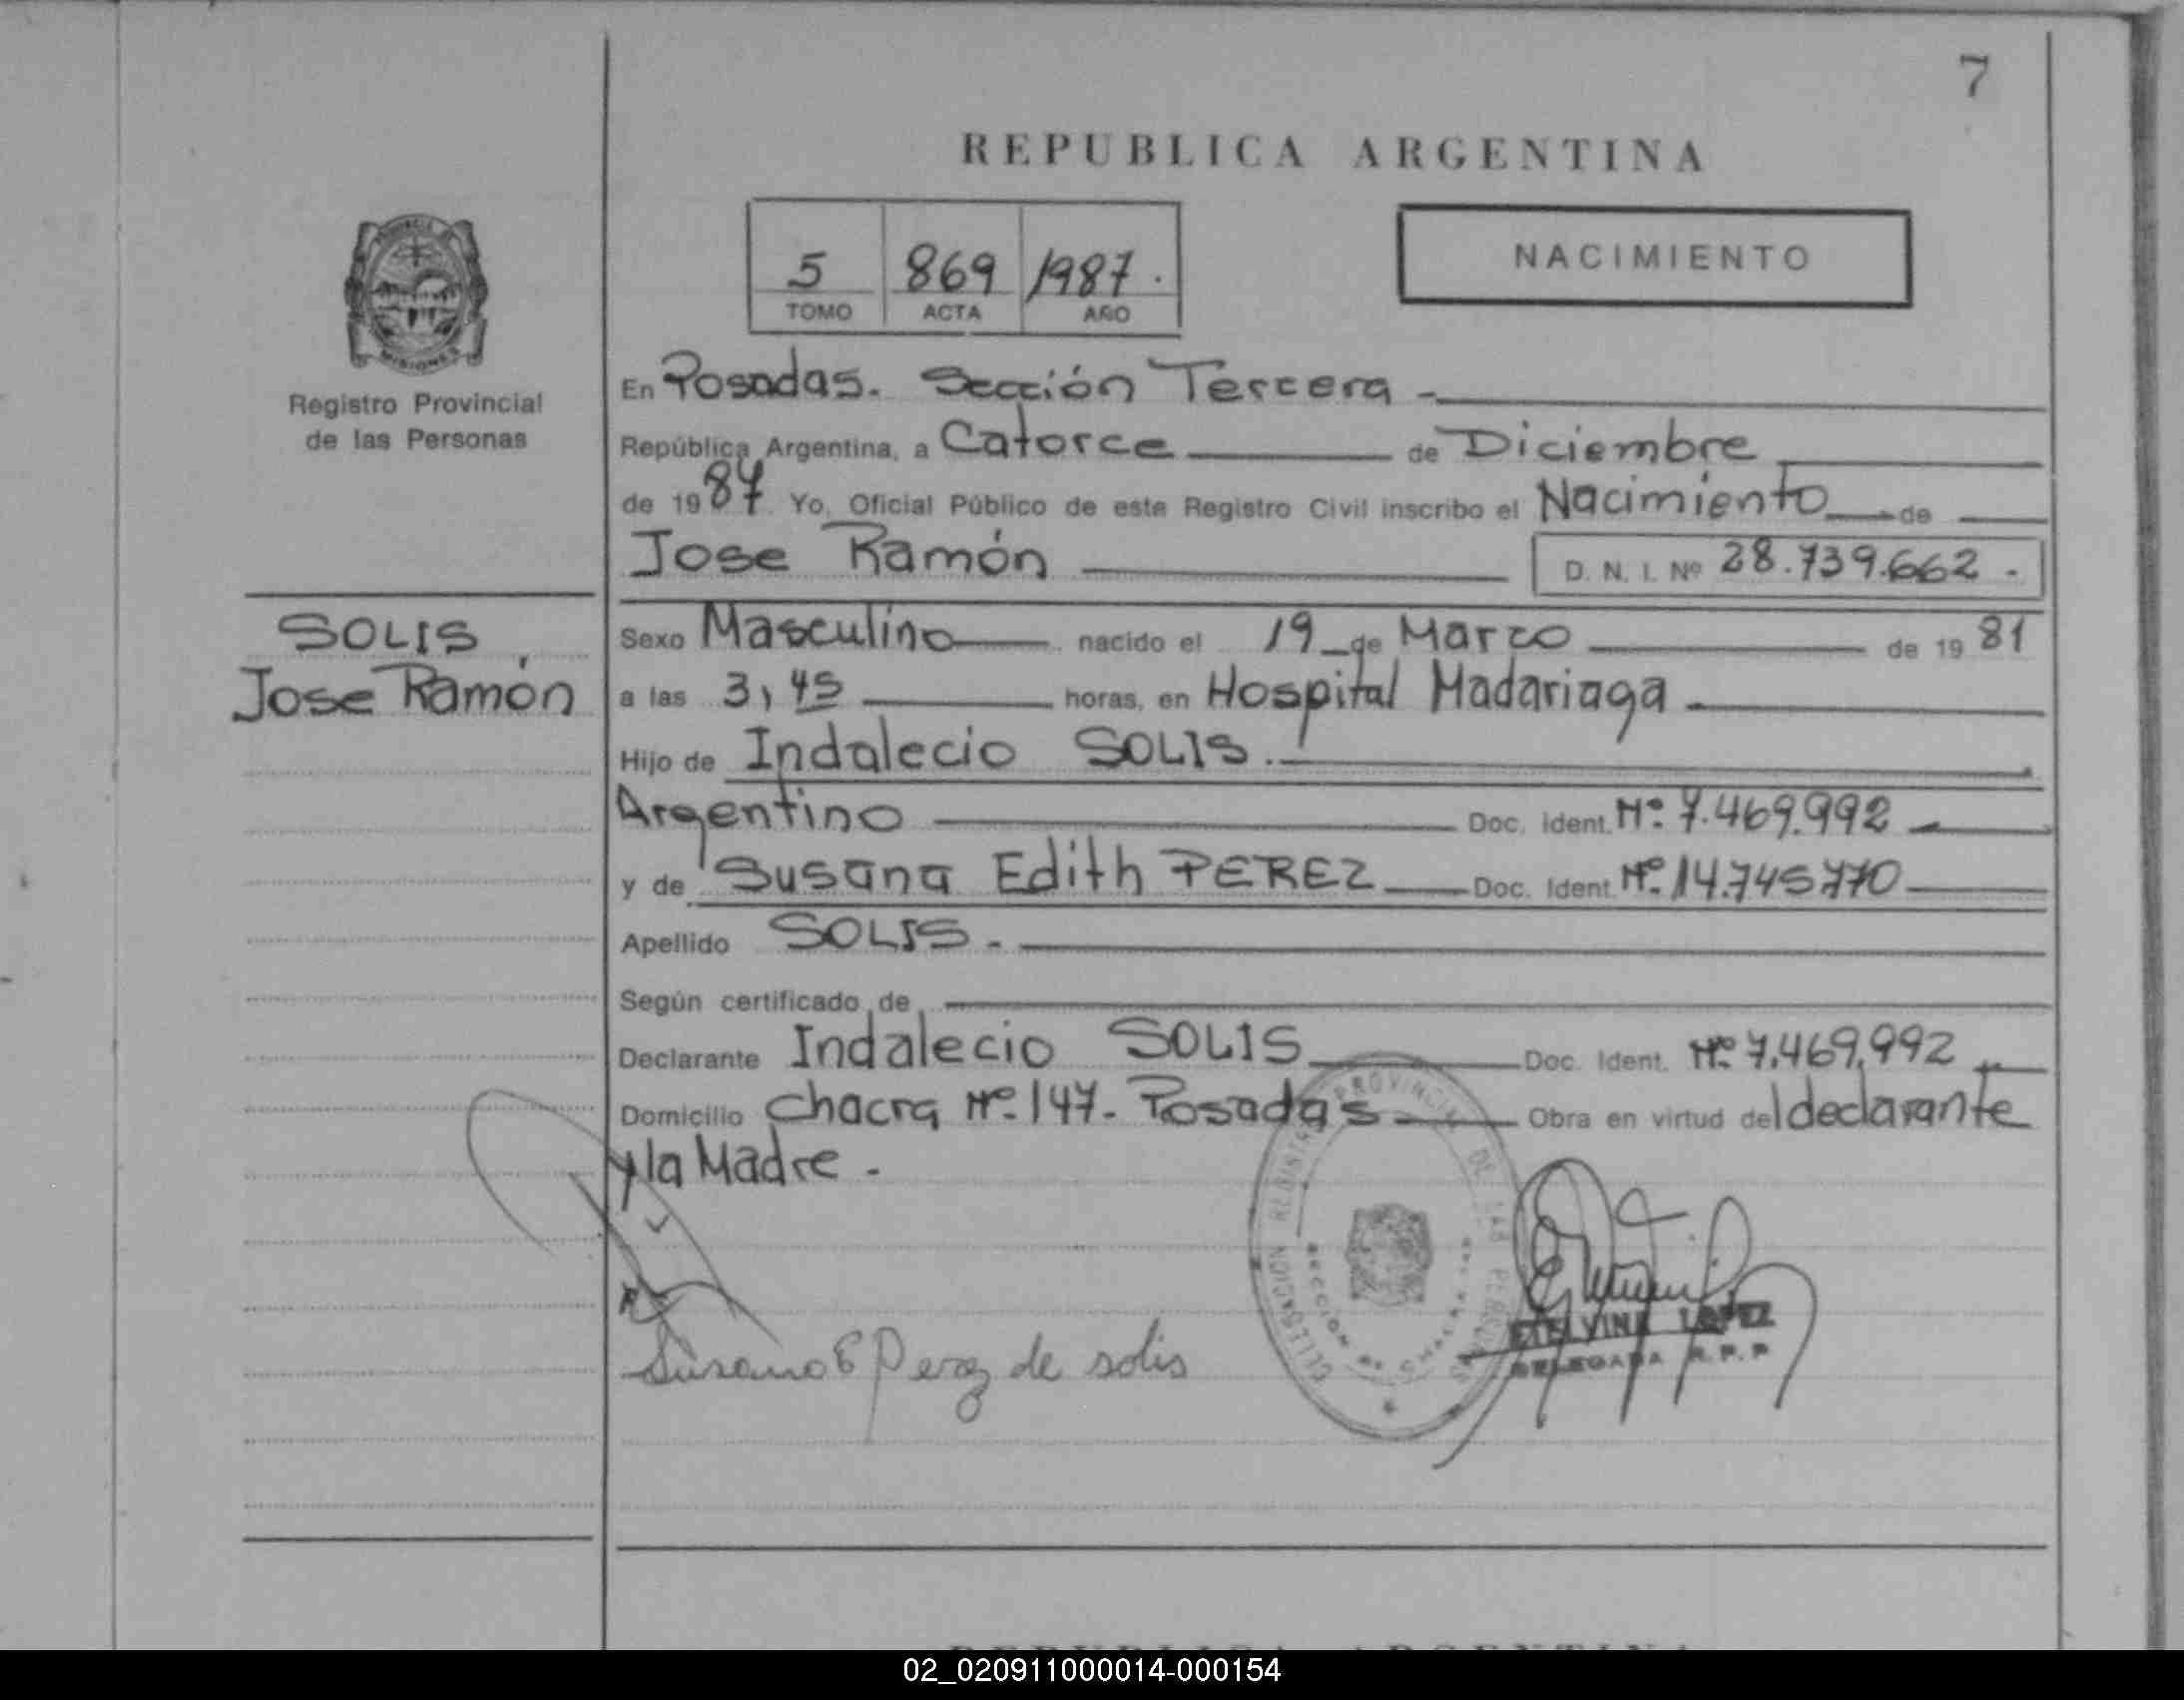 7
REPUBLICA ARGENTINA
5 869 1987.
TOMO ACTA AÑO
NACIMIENTO
MISIONES
Registro Provincial
de las Personas
SOLIS,
Jose Ramón
En Posadas. Sección Tercera -
República Argentina, a Catorce de Diciembre
de 1987. Yo, Oficial Público de este Registro Civil inscribo el Nacimiento de
Jose Ramón D. N. I. Nº 28.739.662.-
Sexo Masculino nacido el 19 de Marzo de 1981
a las 3,45 horas, en Hospital Madariaga
Hijo de Indalecio SOLIS.
Argentino Doc. Ident. Nº: 7.469.992
y de Susana Edith PEREZ Doc. Ident. Nº 14.745770
Apellido SOLIS.
Según certificado de
Declarante Indalecio SOLIS Doc. Ident. Nº 7.469.992
Domicilio Chacra Nº 147- Posadas Obra en virtud del declarante
y la Madre.
Susana E Perez de solis
DELEGACION REGISTRO PROVINCIAL DE LAS PERSONAS
SECCION
ETELVINA LOPEZ
DELEGADA R.P.P
REPUBLICA ARGENTINA
02_020911000014-000154